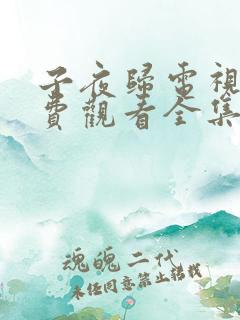 子夜歸電視
費觀看全集
魂魄二代
未经同意禁止转载